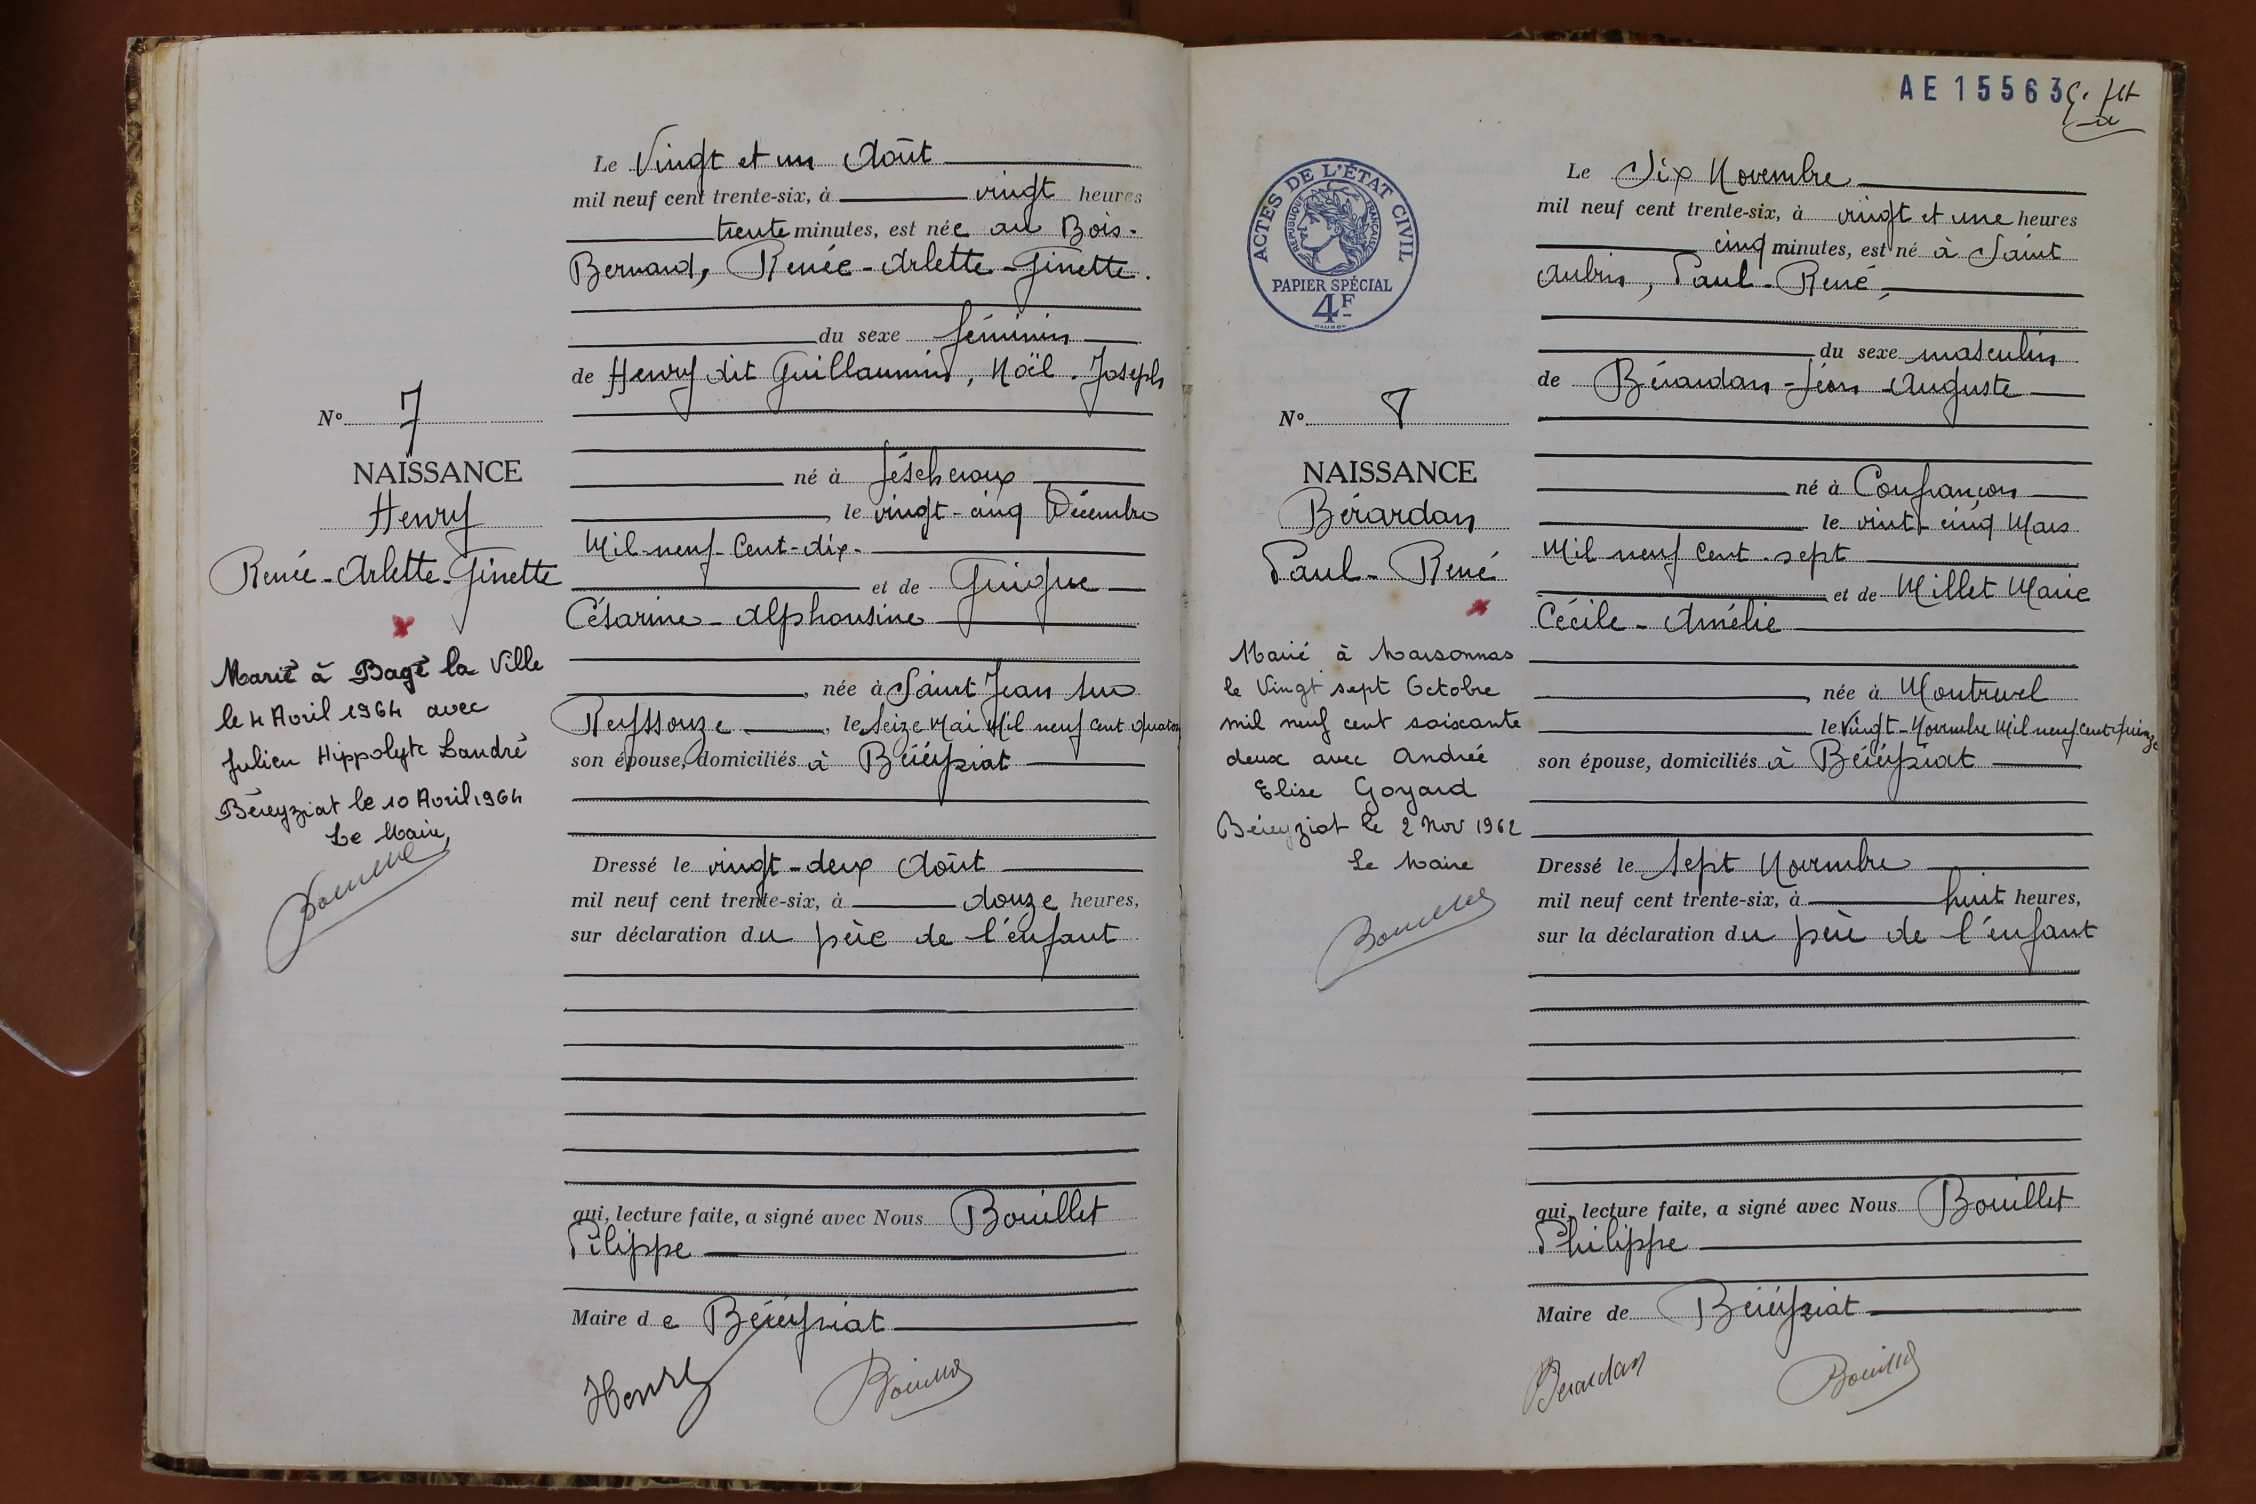 Le Vingt et un Août
mil neuf cent trente-six, à vingt heures
trente minutes, est née au Bois-
Bernard, Renée-Arlette-Ginette.
du sexe féminin
de Henry dit Guillaumin, Noël-Joseph
né à Jéscheroux
le vingt-cinq Décembre
Mil-neuf-Cent-dix-
et de Guigue
Césarine-Alphonsine
, née à Saint Jean sur
Reyssouze, le Seize Mai Mil neuf cent
son épouse, domiciliés à Béréyziat
Dressé le vingt-deux Août
mil neuf cent trente-six, à douze heures,
sur déclaration du père de l'enfant
qui, lecture faite, a signé avec Nous Bouillet
Pilippe
Maire de Béréyziat
Henry
Bouillet
No 7
NAISSANCE
Henry
Renée-Arlette-Ginette
Marié à Bagé la Ville
le 4 Avril 1964 avec
Julien Hippolyte Landré
Béreyziat le 10 Avril 1964
Le Maire
Bouillet
AE 15563
ACTES DE L'ÉTAT CIVIL
RÉPUBLIQUE FRANÇAISE
PAPIER SPÉCIAL
4F
Le Six Novembre
mil neuf cent trente-six, à vingt et une heures
cinq minutes, est né à Saint
Aubin, Paul-René,
du sexe masculin
de Bérardan-Léon-Auguste
né à Confrançon
le vint-cinq Mars
Mil neuf Cent-sept
et de Millet Marie
Cécile-Amélie
, née à Montrevel
le Vingt-Novembre Mil neuf cent quinze
son épouse, domiciliés à Béréyziat
Dressé le Sept Novembre
mil neuf cent trente-six, à huit heures,
sur la déclaration du père de l'enfant
qui, lecture faite, a signé avec Nous Bouillet
Philippe
Maire de Béréyziat
Berardan
Bouillet
No 8
NAISSANCE
Bérardan
Paul-René
Marié à Marsonnas
le Vingt sept Octobre
mil neuf cent soixante
deux avec Andrée
Elise Goyard
Béreyziat le 2 Nov 1962
Le Maire
Bouillet